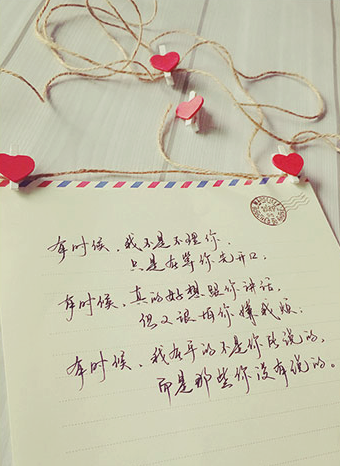 有时候，我不是不理你，
只是在等你先开口。
有时候，真的好想跟你讲话，
但又很怕你嫌我烦。
有时候，我在乎的不是你所说的，
而是那些你没有说的。